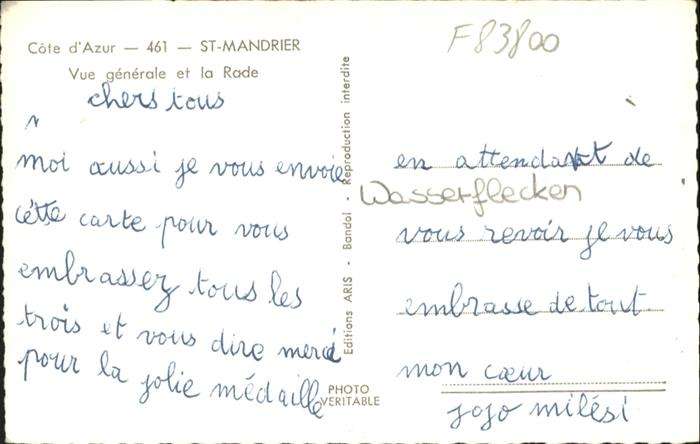 Côte d'Azur — 461 — ST-MANDRIER
Vue générale et la Rade
chers tous
moi aussi je vous envoie
cétte carte pour vous
embrassez tous les
trois et vous dire merci
pour la jolie médaille
Editions ARIS - Bandol - Reproduction interdite
PHOTO
VERITABLE
F83800
en attendant de
Wasserflecken
vous revoir je vous
embrasse de tout
mon cœur
jojo milési